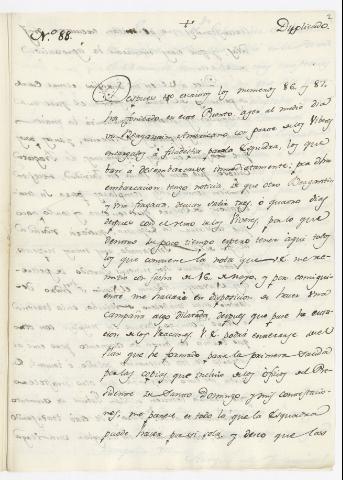 2
Duplicado.
N.º 88.
Despues de escritos los numeros 86 y 87.
ha fondeado en este Puerto ayer al medio dia
un Bergantin Americano con parte de los Viberes
encargados à Filadelfia para la Esquadra, los que
ban à desembarcarse inmediatamente; por dha
embarcacion tengo noticia de que otro Bergantin
y una fragata, devian salir tres, ó quatro dias
despues con el resto de los Viveres, por lo que
dentro de poco tiempo espero tener aqui todos
los que contiene la nota que V.E. me re-
mitio con fecha de 16 de Mayo, y por consiguien
te me hallaré en disposicion de hacer una
Campaña algo dilatada, despues que pase la esta-
cion de los Uracanes. V.E. podrá enterarse del
Plan que he formado para la primera Salida
por las copias que incluio de los oficios del Pre-
sidente de Santo Domingo, y mis contestacio-
nes, me parece, en todo lo que la Esquadra
puede hacer por si sola, y deseo que las